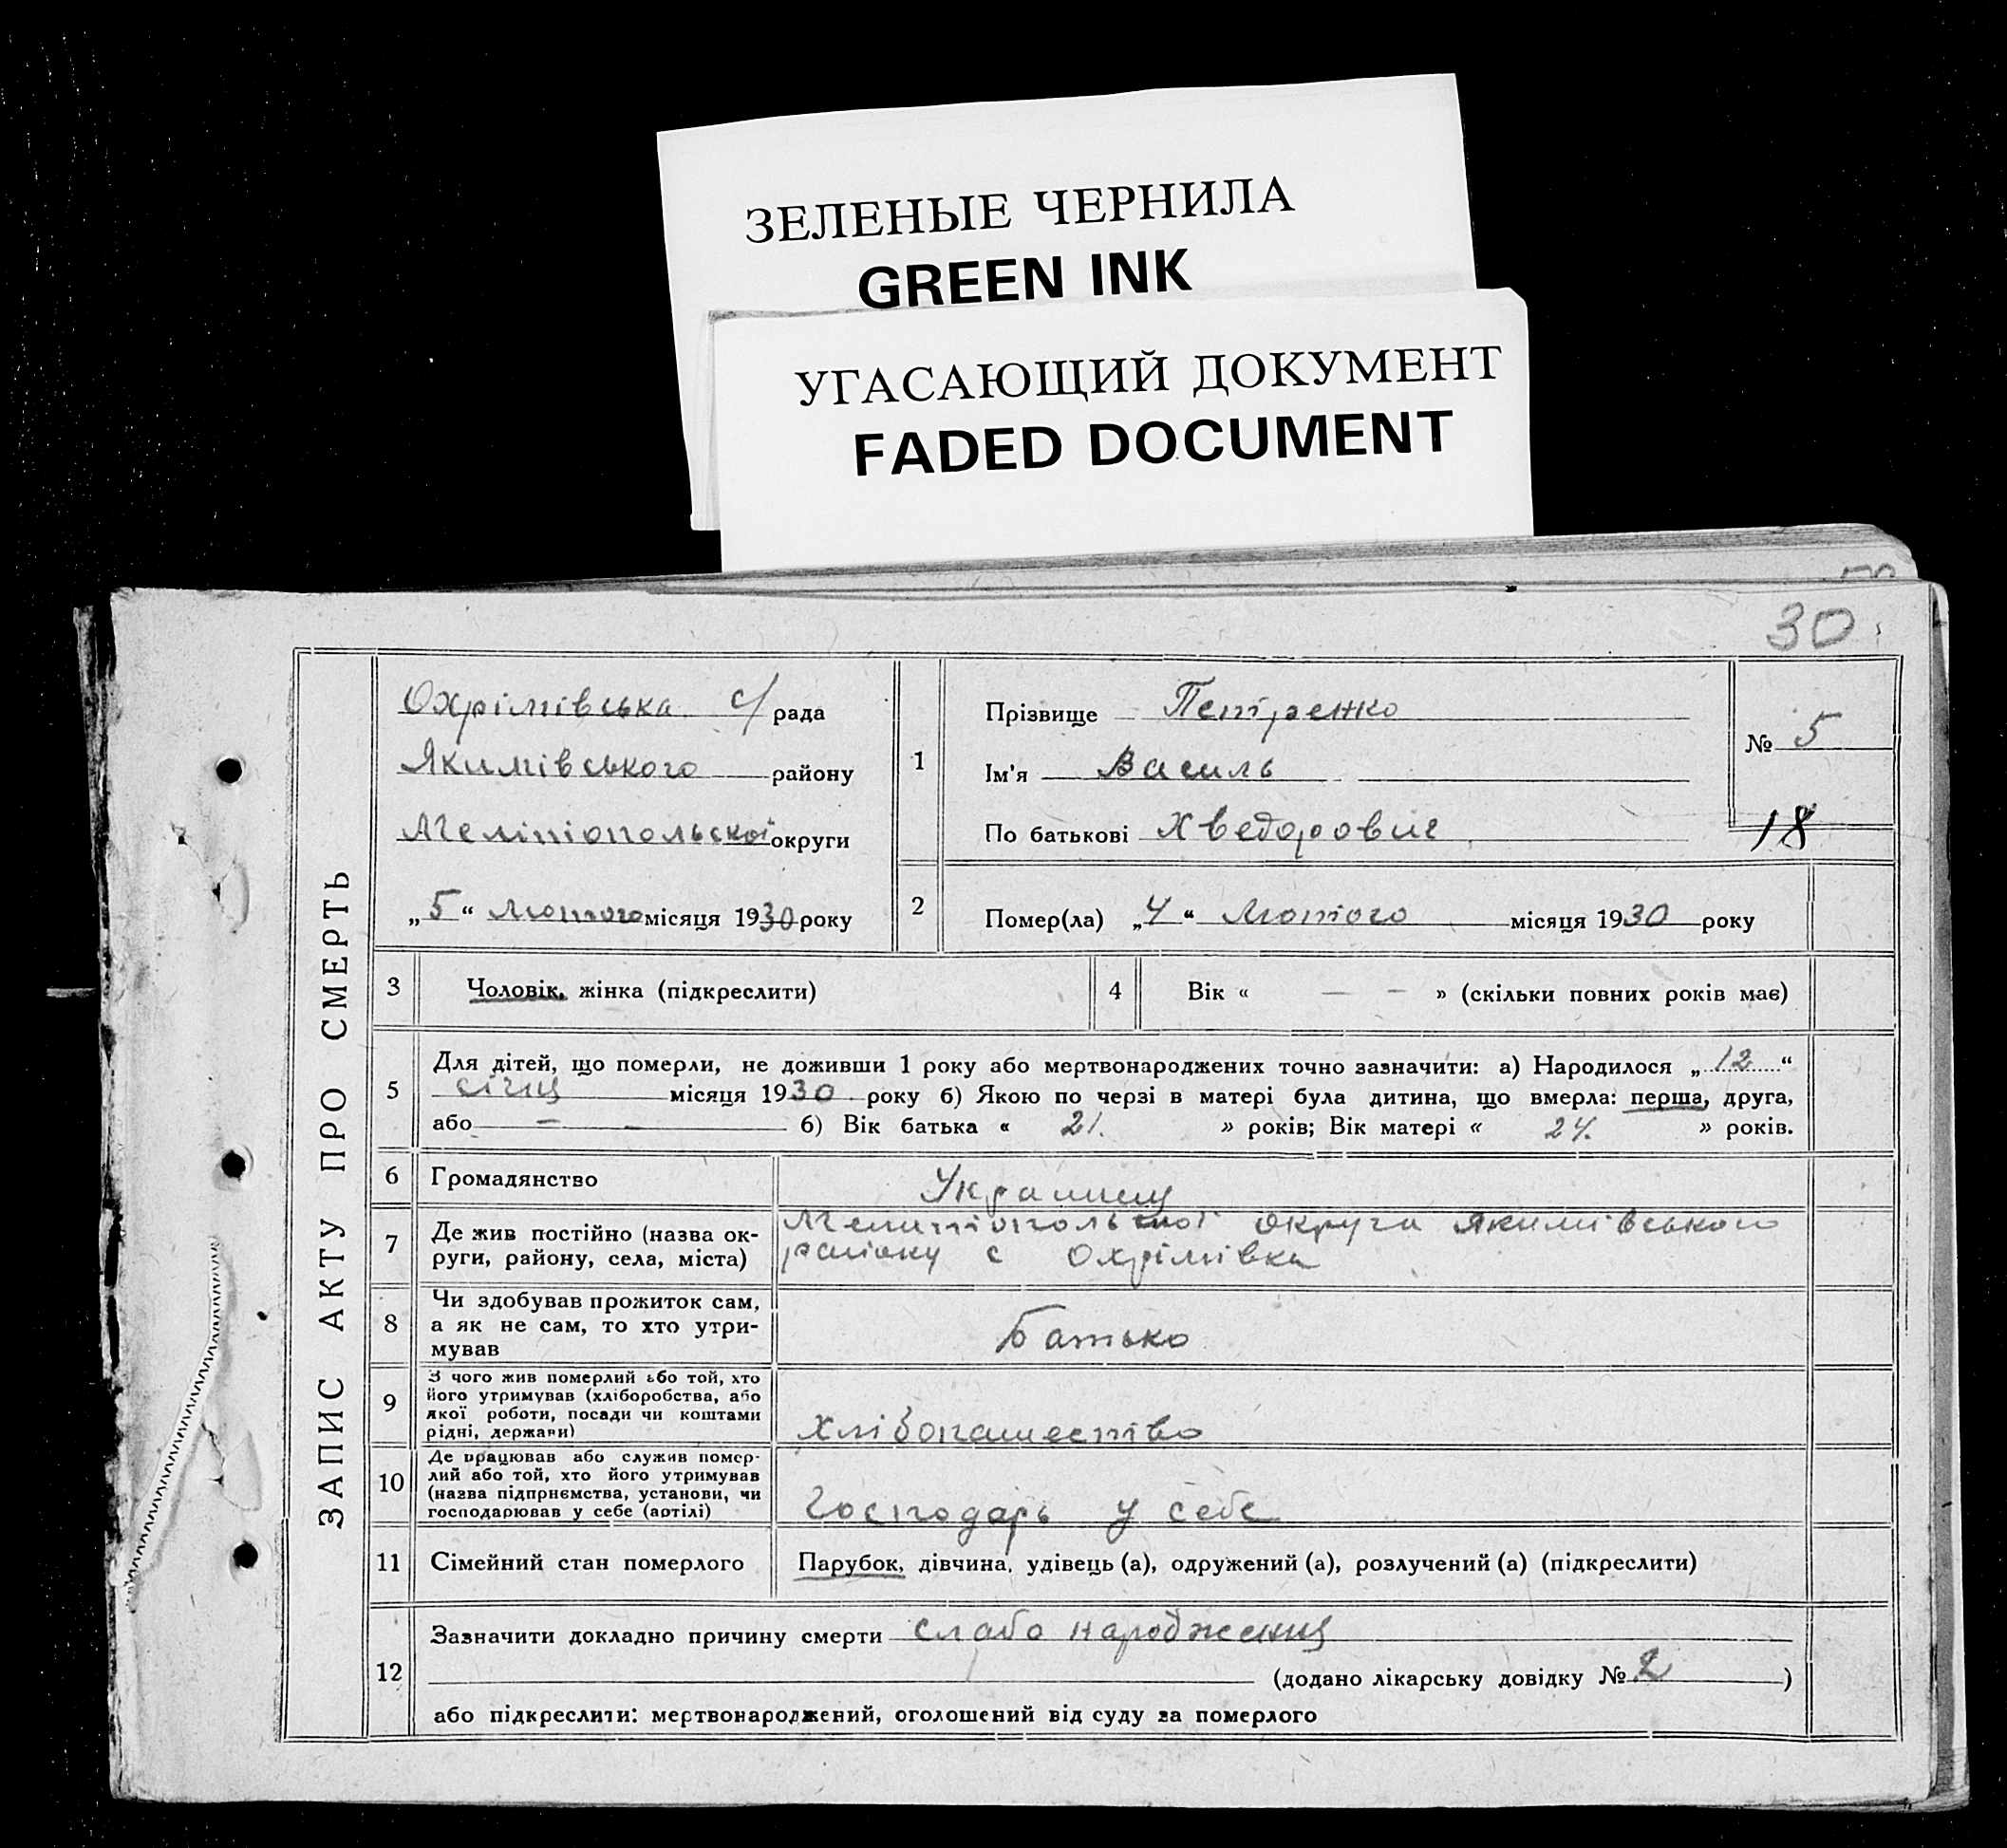 ЗЕЛЕНЫЕ ЧЕРНИЛА
GREEN INK
УГАСАЮЩИЙ ДОКУМЕНТ
FADED DOCUMENT
30
ЗАПИС АКТУ ПРО СМЕРТЬ
Охрімівська с/ рада
Якимівського району
Мелітопольської округи
„5“ Лютого місяця 1930 року
1
Прізвище Петренко
Ім'я Василь
По батькові Хведорович
№ 5
18
2
Помер(ла) „4“ Лютого місяця 1930 року
3 Чоловік, жінка (підкреслити)
4 Вік « — — » (скільки повних років має)
5
Для дітей, що померли, не доживши 1 року або мертвонароджених точно зазначити: а) Народилося „12“
січня місяця 1930 року б) Якою по черзі в матері була дитина, що вмерла: перша, друга,
або — — б) Вік батька « 21. » років; Вік матері « 24. » років.
6 Громадянство
Украинец
7
Де жив постійно (назва ок-
руги, району, села, міста)
Мелитопольської округи Якимівського
району с Охрімівка
8
Чи здобував прожиток сам,
а як не сам, то хто утри-
мував
Батько
9
З чого жив померлий або той, хто
його утримував (хліборобства, або
якої роботи, посади чи коштами
рідні, держави)
Хлібопашество
10
Де працював або служив помер-
лий або той, хто його утримував
(назва підприємства, установи, чи
господарював у себе (артілі)
Господарь у себе
11 Сімейний стан померлого
Парубок, дівчина, удівець (а), одружений (а), розлучений (а) (підкреслити)
12
Зазначити докладно причину смерти слабо народження
(додано лікарську довідку № 2)
або підкреслити: мертвонароджений, оголошений від суду за померлого